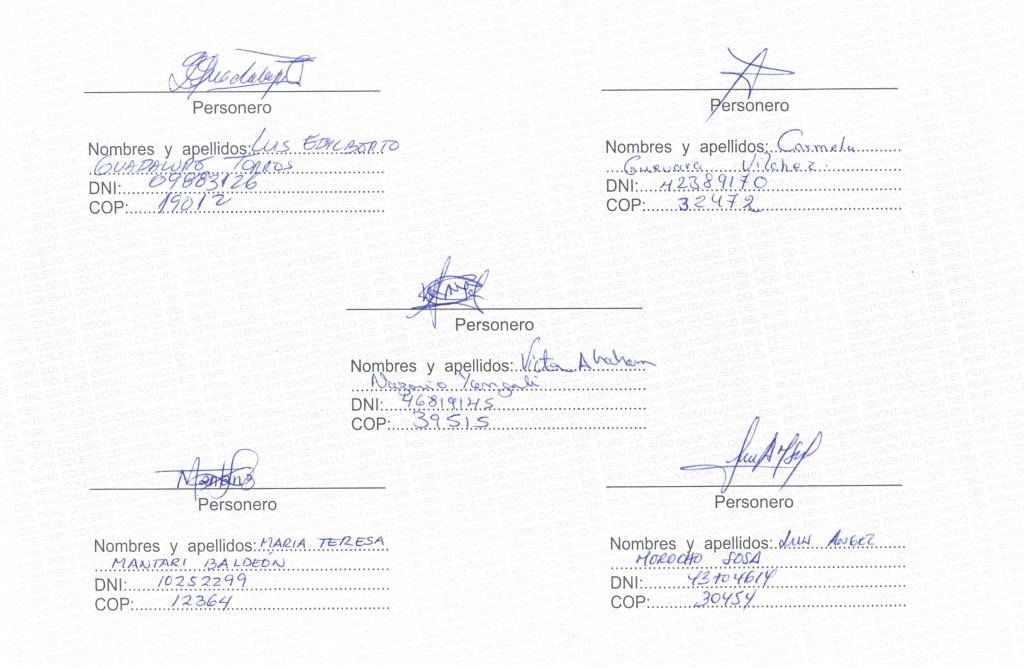 Guadalupe T
Personero
Nombres y apellidos: LUIS EDILBERTO
GUADALUPE TORRES
DNI: 09883126
COP: 19012
Personero
Nombres y apellidos: Carmela
Guevara Vilchez.
DNI: 42389170
COP: 32472
Personero
Nombres y apellidos: Victor Abraham
Nazario Yangali
DNI: 46819145
COP: 39515
Personero
Nombres y apellidos: MARIA TERESA
MANTARI BALDEÓN
DNI: 10252299
COP: 12364
Personero
Nombres y apellidos: Luis ANGEL
MOROCHO SOSA
DNI: 43704614
COP: 30454